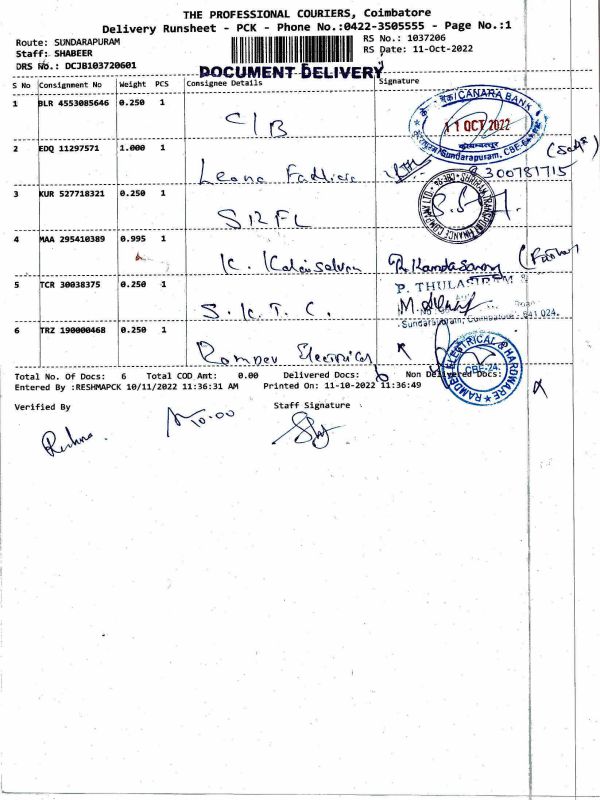 THE PROFESSIONAL COURIERS, Coimbatore
Delivery Runsheet - PCK - Phone No.:0422-3505555 - Page No.:1
Route: SUNDARAPURAM RS No.: 1037206
Staff: SHABEER RS Date: 11-Oct-2022
DRS No.: DCJB103720601
DOCUMENT DELIVERY
S No Consignment No Weight PCS Consignee Details Signature
1 BLR 4553085646 0.250 1 C/B CANARA BANK
11 OCT 2022
Sundarapuram, CBE-
2 EDQ 11297571 1.000 1 (Self)
9300781715
3 KUR 527718321 0.250 1 SRFL
4 MAA 295410389 0.995 1 K. Kalaiselvan R. Kandasamy (Father)
5 TCR 30038375 0.250 1 S.K.T.C. P. THULASIRAM &
Sundarapuram, Coimbatore - 641 024.
6 TRZ 190000468 0.250 1 Ramdev Electrical
RAMDEV ELECTRICAL & HARDWARE
CBE-24.
Total No. Of Docs: 6 Total COD Amt: 0.00 Delivered Docs: 6 Non Delivered Docs:
Entered By :RESHMAPCK 10/11/2022 11:36:31 AM Printed On: 11-10-2022 11:36:49
Verified By Staff Signature
Reshma